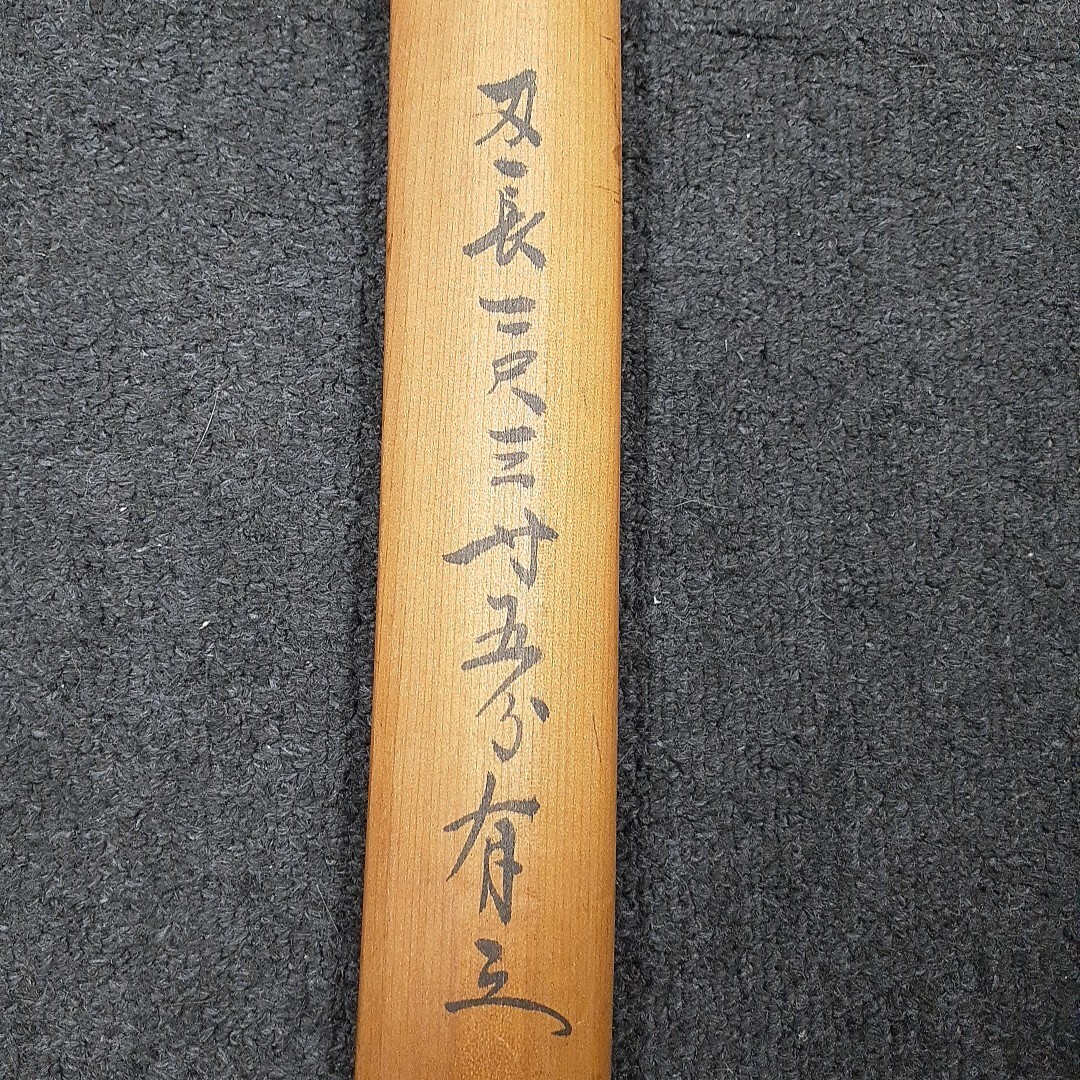 刃長二尺三寸五分有之